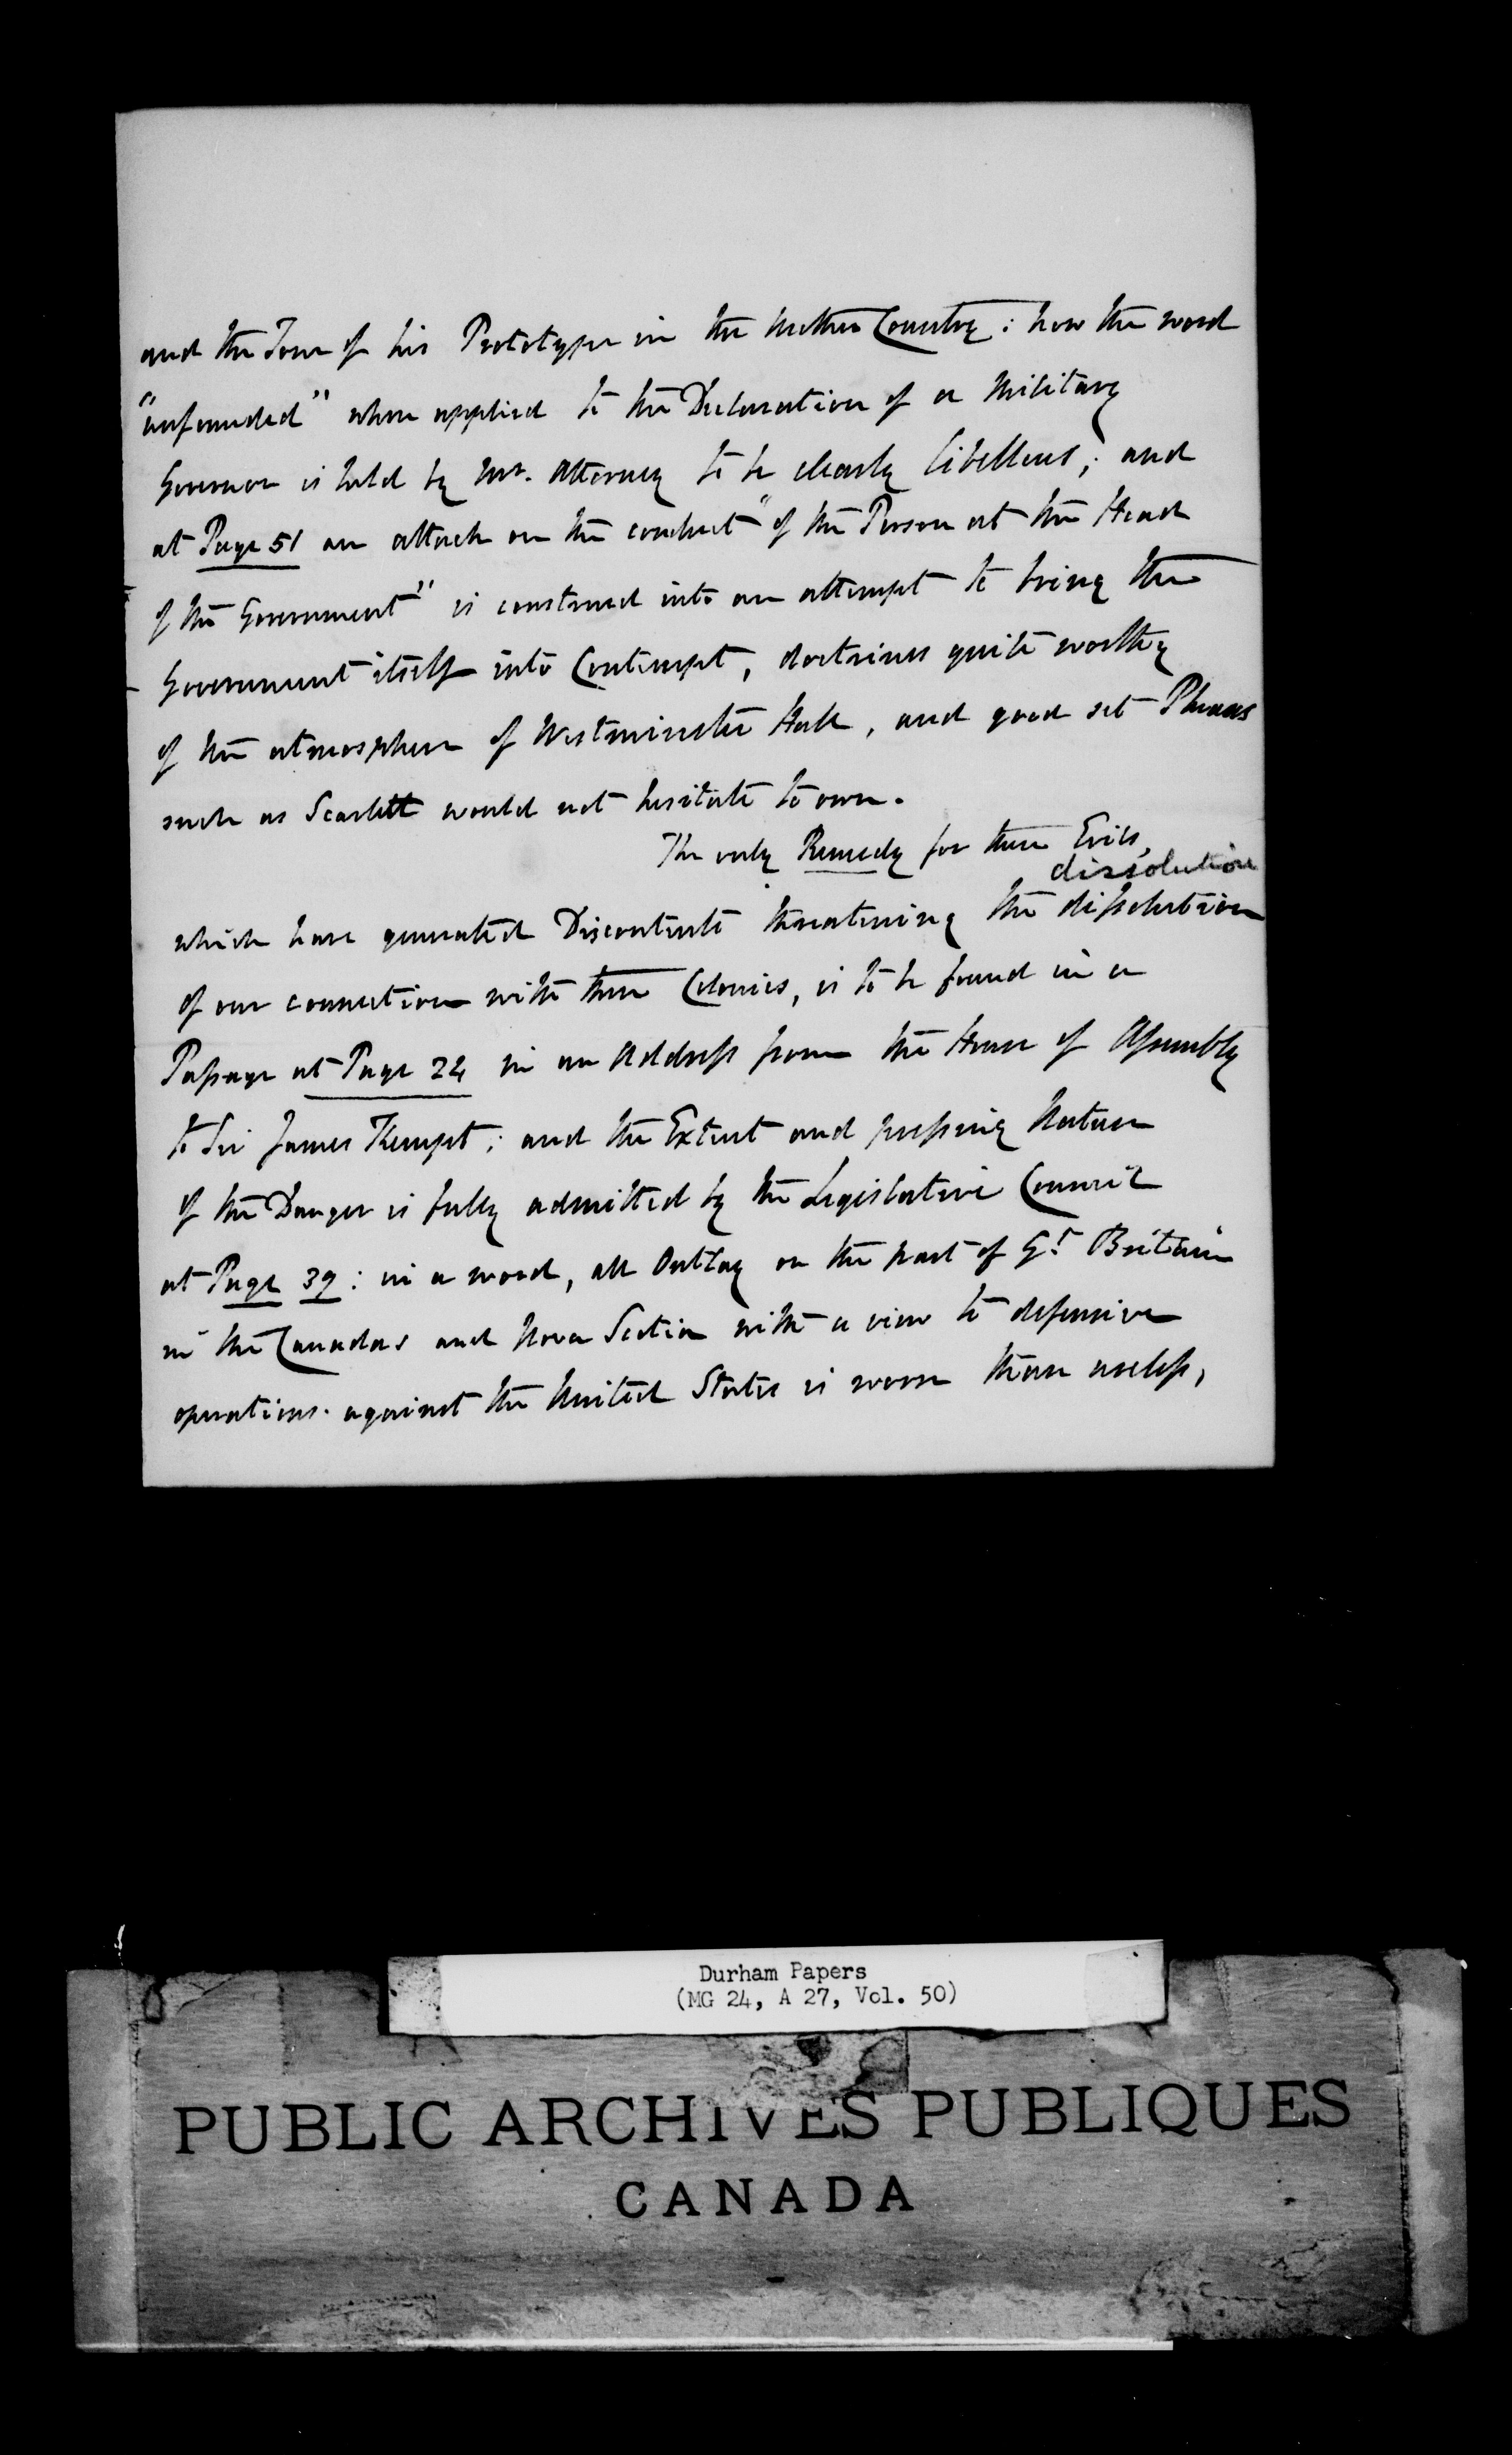 and the Tone of his Prototype in the Mother Country: how the word
"unfounded" when applied to the Declaration of a Military
Governor is held by Mr. Attorney to be clearly libellous; and
at Page 51 an attack on the conduct "of the Person at the Head
of the Government" is construed into an attempt to bring the
Government itself into Contempt, doctrines quite worthy
of the atmosphere of Westminster Hall, and good set Phrases
such as Scarlett would not hesitate to own.
The only Remedy for these Evils,
dissolution
which have generated Discontents threatening the dissolution
of our connection with these Colonies, is to be found in a
Passage at Page 24 in an Address from the House of Assembly
to Sir James Kempt; and the Extent and pressing Nature
of the Danger is fully admitted by the Legislative Council
at Page 39: in a word, all Outlay on the part of Gt. Britain
in the Canadas and Nova Scotia with a view to defensive
operations against the United States is worse than useless,
Durham Papers
(MG 24, A 27, Vol. 50)
PUBLIC ARCHIVES PUBLIQUES
CANADA